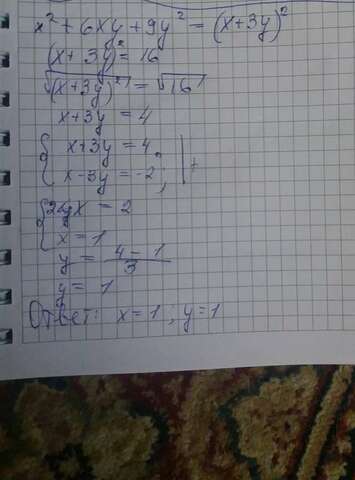 x² + 6xy + 9y² = (x+3y)²
(x+3y)² = 16
√(x+3y)² = √16
x+3y = 4
{ x+3y = 4
x-3y = -2; | +
{ 2x = 2
x = 1
y = (4-1)/3
y = 1
Ответ: x=1; y=1